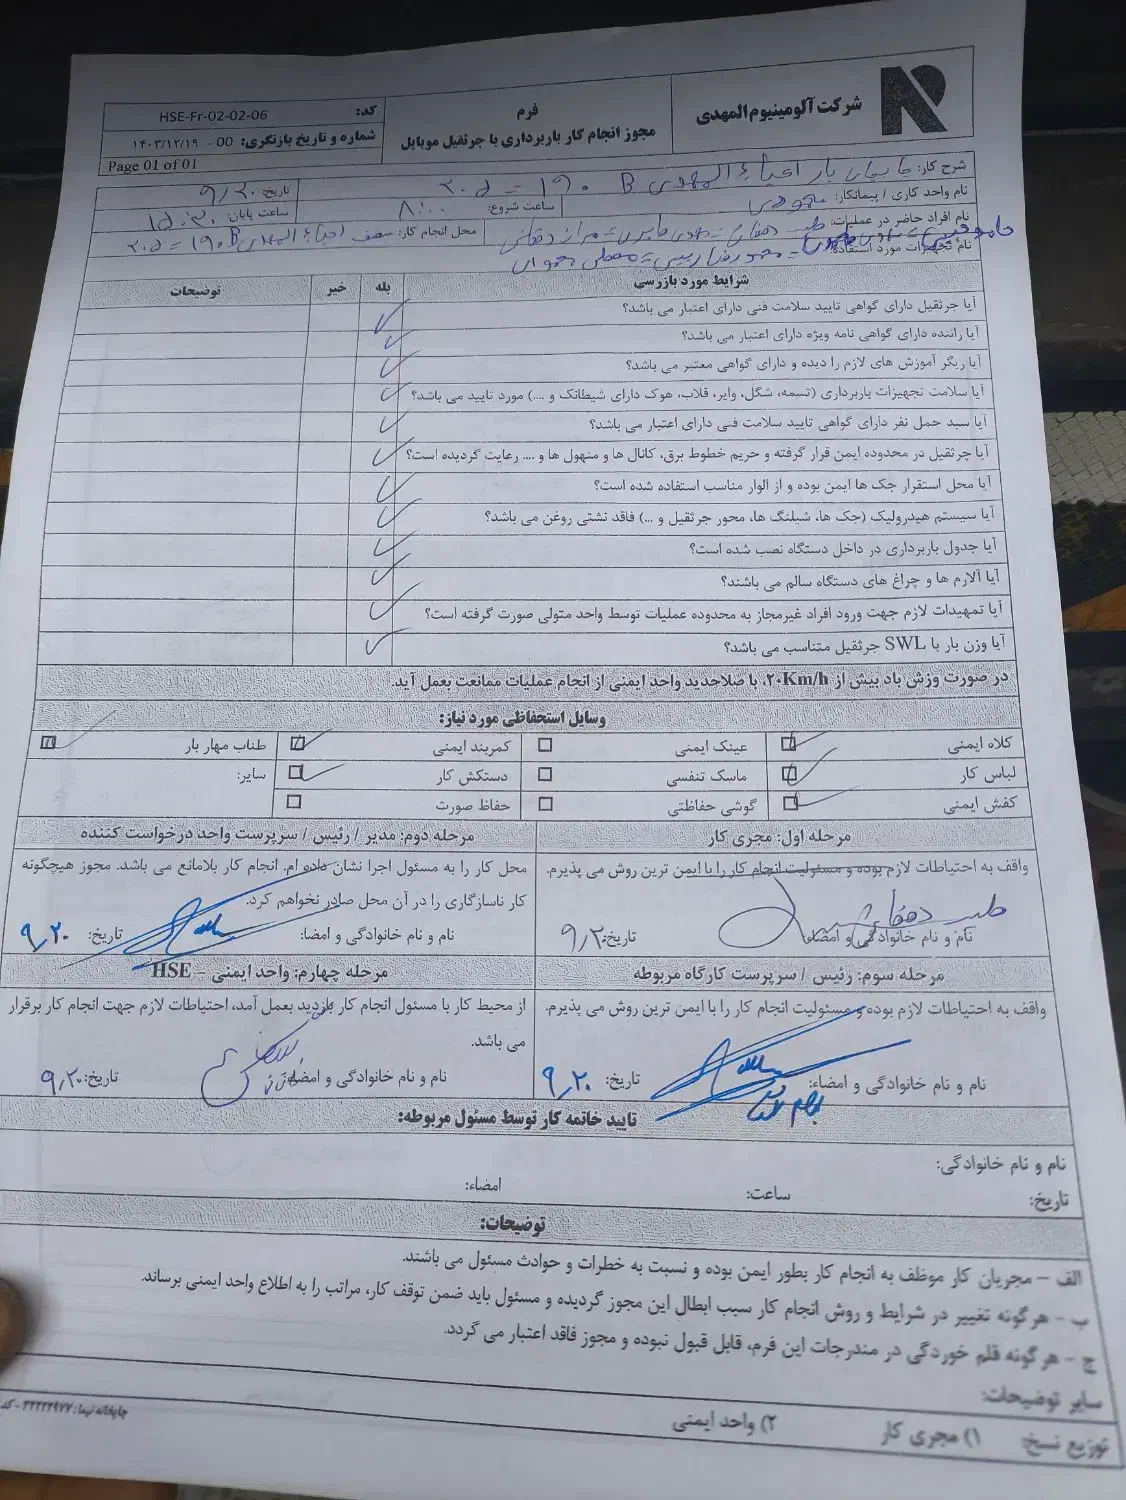 شرکت آلومینیوم المهدی
فرم
مجوز انجام کار باربرداری با جرثقیل موبایل
کد: HSE-Fr-02-02-06
شماره و تاریخ بازنگری: 00 - ۱۴۰۳/۱۲/۱۹
Page 01 of 01
شرح کار: جابجایی بار احیاء المهدی 190B = 205
تاریخ: ۹/۲۰
نام واحد کاری / پیمانکار: محمودی
ساعت شروع: ۸:۰۰
ساعت پایان: ۱۵:۳۰
نام افراد حاضر در عملیات:
محل انجام کار: سقف احیاء المهدی 190B = 205
نام تجهیزات مورد استفاده:
شرایط مورد بازرسی
بله
خیر
توضیحات
آیا جرثقیل دارای گواهی تایید سلامت فنی دارای اعتبار می باشد؟
آیا راننده دارای گواهی نامه ویژه دارای اعتبار می باشد؟
آیا ریگر آموزش های لازم را دیده و دارای گواهی معتبر می باشد؟
آیا سلامت تجهیزات باربرداری (تسمه، شگل، وایر، قلاب، هوک دارای شیطانک و ....) مورد تایید می باشد؟
آیا سبد حمل نفر دارای گواهی تایید سلامت فنی دارای اعتبار می باشد؟
آیا جرثقیل در محدوده ایمن قرار گرفته و حریم خطوط برق، کانال ها و منهول ها و .... رعایت گردیده است؟
آیا محل استقرار جک ها ایمن بوده و از الوار مناسب استفاده شده است؟
آیا سیستم هیدرولیک (جک ها، شیلنگ ها، محور جرثقیل و ...) فاقد نشتی روغن می باشد؟
آیا جدول باربرداری در داخل دستگاه نصب شده است؟
آیا آلارم ها و چراغ های دستگاه سالم می باشند؟
آیا تمهیدات لازم جهت ورود افراد غیرمجاز به محدوده عملیات توسط واحد متولی صورت گرفته است؟
آیا وزن بار با SWL جرثقیل متناسب می باشد؟
در صورت وزش باد بیش از ۲۰Km/h، با صلاحدید واحد ایمنی از انجام عملیات ممانعت بعمل آید.
وسایل استحفاظی مورد نیاز:
کلاه ایمنی
عینک ایمنی
کمربند ایمنی
طناب مهار بار
لباس کار
ماسک تنفسی
دستکش کار
سایر:
کفش ایمنی
گوشی حفاظتی
حفاظ صورت
مرحله اول: مجری کار
مرحله دوم: مدیر / رئیس / سرپرست واحد درخواست کننده
واقف به احتیاطات لازم بوده و مسئولیت انجام کار را با ایمن ترین روش می پذیرم.
نام و نام خانوادگی و امضاء:
تاریخ: ۹/۲۰
محل کار را به مسئول اجرا نشان داده ام. انجام کار بلامانع می باشد. مجوز هیچگونه
کار ناسازگاری را در آن محل صادر نخواهم کرد.
نام و نام خانوادگی و امضا:
تاریخ: ۹/۲۰
مرحله سوم: رئیس / سرپرست کارگاه مربوطه
مرحله چهارم: واحد ایمنی – HSE
واقف به احتیاطات لازم بوده و مسئولیت انجام کار را با ایمن ترین روش می پذیرم.
نام و نام خانوادگی و امضاء:
تاریخ: ۹/۲۰
از محیط کار با مسئول انجام کار بازدید بعمل آمد، احتیاطات لازم جهت انجام کار برقرار
می باشد.
نام و نام خانوادگی و امضاء:
تاریخ: ۹/۲۰
تایید خاتمه کار توسط مسئول مربوطه:
نام و نام خانوادگی:
تاریخ:
ساعت:
امضاء:
توضیحات:
الف – مجریان کار موظف به انجام کار بطور ایمن بوده و نسبت به خطرات و حوادث مسئول می باشند.
ب – هر گونه تغییر در شرایط و روش انجام کار سبب ابطال این مجوز گردیده و مسئول باید ضمن توقف کار، مراتب را به اطلاع واحد ایمنی برساند.
ج – هر گونه قلم خوردگی در مندرجات این فرم، قابل قبول نبوده و مجوز فاقد اعتبار می گردد.
سایر توضیحات:
توزیع نسخ:
۱) مجری کار
۲) واحد ایمنی
چاپخانه نیما: ۳۲۲۲۲۹۷۷ - کد